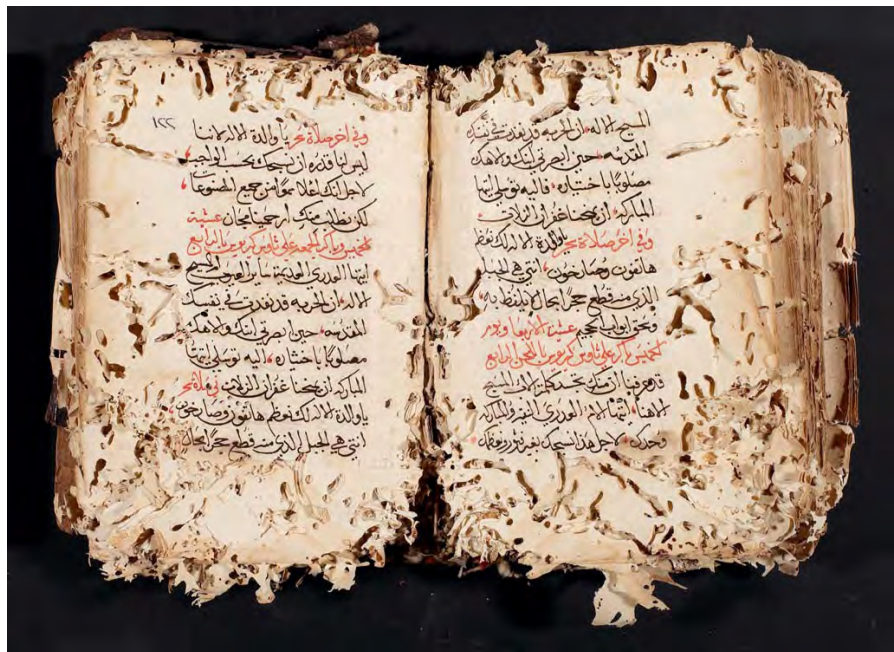 المسيح الاله، ان الحربه قد نفدت في نفسك
المقدسه، حين ابصرتي ابنك والاهك
مصلوبًا باختياره، فاليه توسلي ايتها
المباركه، ان يمنحنا غفران الزلات
وفي اخر صلاة سحر يا والدة الاله لك نعظم
هاتفون وصارخون، انتي هي الجبل
الذي منه قطع حجرًا بحال لا يلفظ به
وسحق ابواب الجحيم عشية الاربعا ويوم
الخميس باكر على باللحن الرابع
قد عرفنا ان منك تجسد كلمة الاب المسيح
الاهنا، ايتها الام العدري النقيه والمباركه
وحدك، لاجل هذا نسبحك بغير فتور ونعظمك
١٢٢
وفي اخر صلاة سحر يا والدة الاله اننا
ليس لنا قدره ان نسبحك بحسب الواجب
لاجل انك اعلا سموًا من جميع المصنوعات
لكن نطلب منك ارحمينا مجان عشية
الخميس وباكر الجمعه على بالرابع
ايتها العدري العيب ام المسيح
الاله، ان الحربه قد نفدت في نفسك
المقدسه، حين ابصرتي ابنك والاهك
مصلوبًا باختياره، اليه توسلي ايتها
المباركه ان يمنحنا غفران الزلات
يا والدة الاله لك نعظم هاتفون وصارخون
انتي هي الجبل الذي منه قطع حجرًا بحال